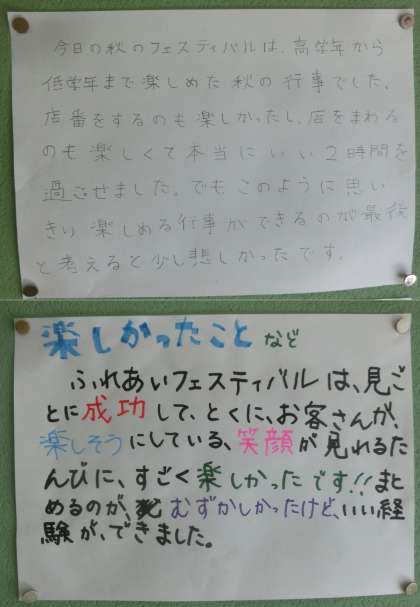 今日の秋のフェスティバルは、高学年から
低学年まで楽しめた秋の行事でした。
店番をするのも楽しかったし、店をまわる
のも楽しくて本当にいい2時間を
過ごせました。でもこのように思い
きり楽しめる行事ができるのが最後
と考えると少し悲しかったです。
楽しかったこと など
ふれあいフェスティバルは、見ご
とに成功して、とくに、お客さんが、
楽しそうにしている、笑顔が見れるた
んびに、すごく楽しかったです!!まと
めるのが、むずかしかったけど、いい経
験が、できました。